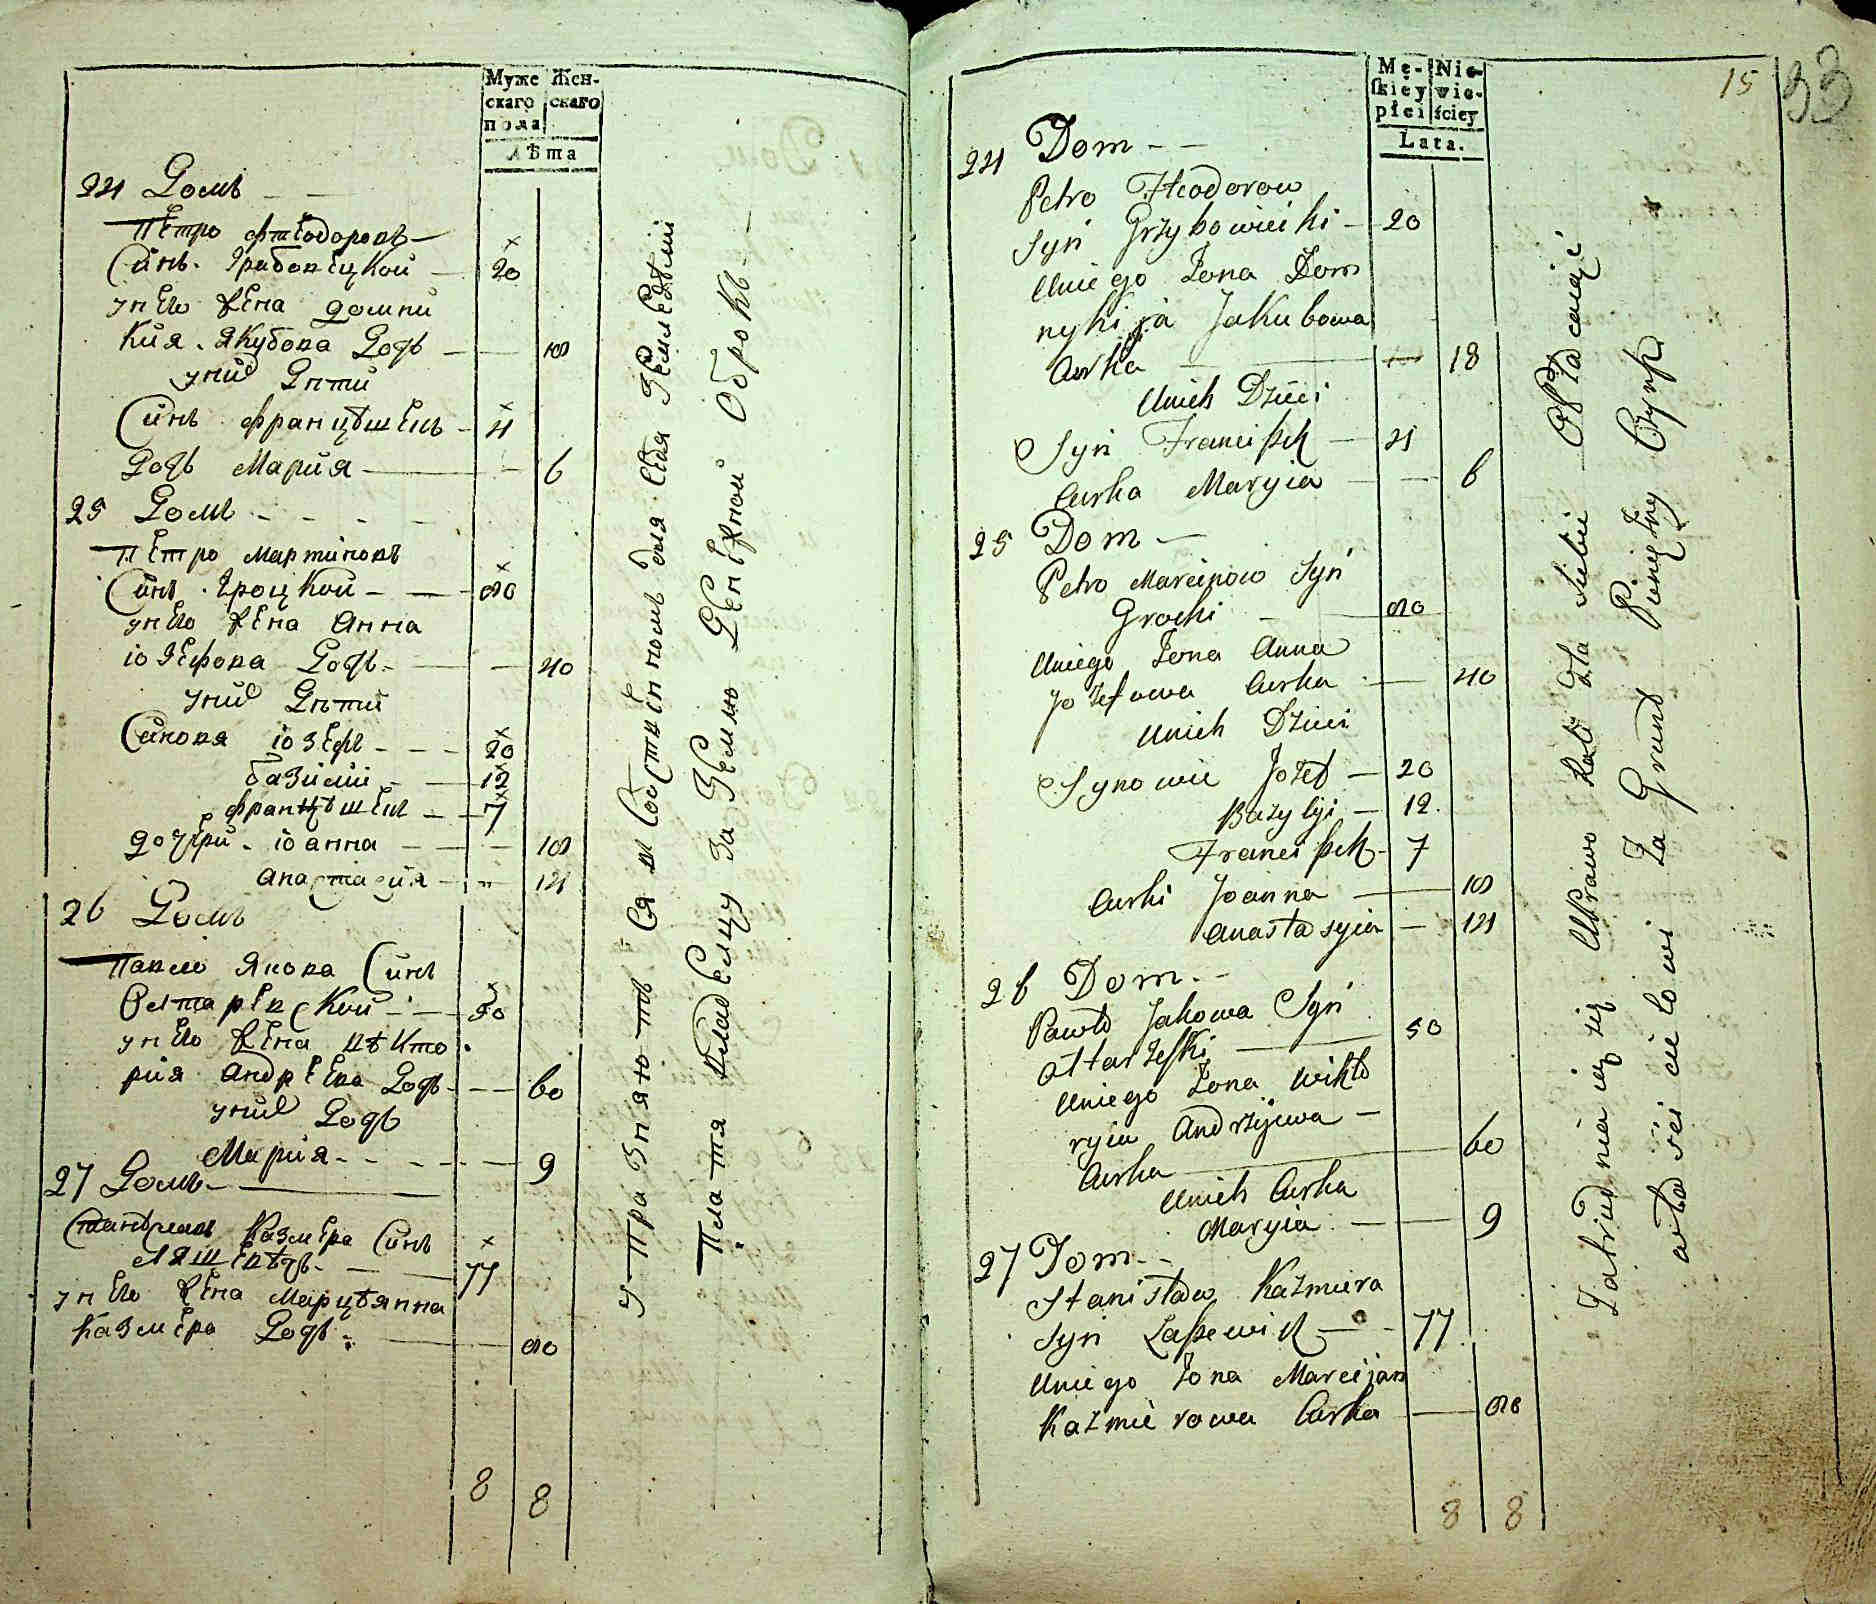 Муже Жен-
скаго скаго
пола
Лѣта
24 Домъ
Петро Фтеодоровъ
Синъ Грабовецкой 20
унего жена Домни
кия Якубова Дочь 18
уних Дѣти
Синъ Францѣшекъ 4
Дочь Мария 6
25 Домъ
Петро Мартиновъ
Синъ Гроцкой 80
унего жена Анна
іозефова Дочь 40
уних Дѣти
Синовя іозефъ 20
базилій 12
Францѣшек 7
дочери іоанна 18
анастасия 14
26 Домъ
Павло Якова Синъ
50
унего жена вѣкто
рия андреева Дочь 60
уних Дочь
Мария 9
27 Домъ
Казмера Синъ
77
унего жена Марцѣянна
Казмера Дочь 80
8 8
земледѣлии
Платя владелцу за землю денежной оброкъ
15
33
Mę- Nie-
ſkiey wie-
płci ściey
Lata.
24 Dom
Petro Fteodorow
Syn Grzybowiecki 20
Uniego Zona Dom
nykija Jakubowa
Curka 18
Unich Dzieci
Syn Franciszek 4
Curka Maryia 6
25 Dom
Petro Marcinow Syn
Grocki 80
Uniego Zona Anna
Jozefowa Curka 40
Unich Dzieci
Synowie Jozef 20
Bazylyi 12
Franciszek 7
Curki Joanna 18
Anastasyia 14
26 Dom
Pawło Jakowa Syn
50
Uniego Zona Wikto
ryia Andrzijewa
Curka 60
Unich Curka
Maryia 9
27 Dom
Stanisław Kazmiera
Syn Laszewicz 77
Uniego Zona Marcijan
Kazmierowa Curka 80
8 8
Zatrudniaią się Uprawą Roli dla Siebie Opłacaiąc
właścicielowi za Grunt Pieniężny Czynsz